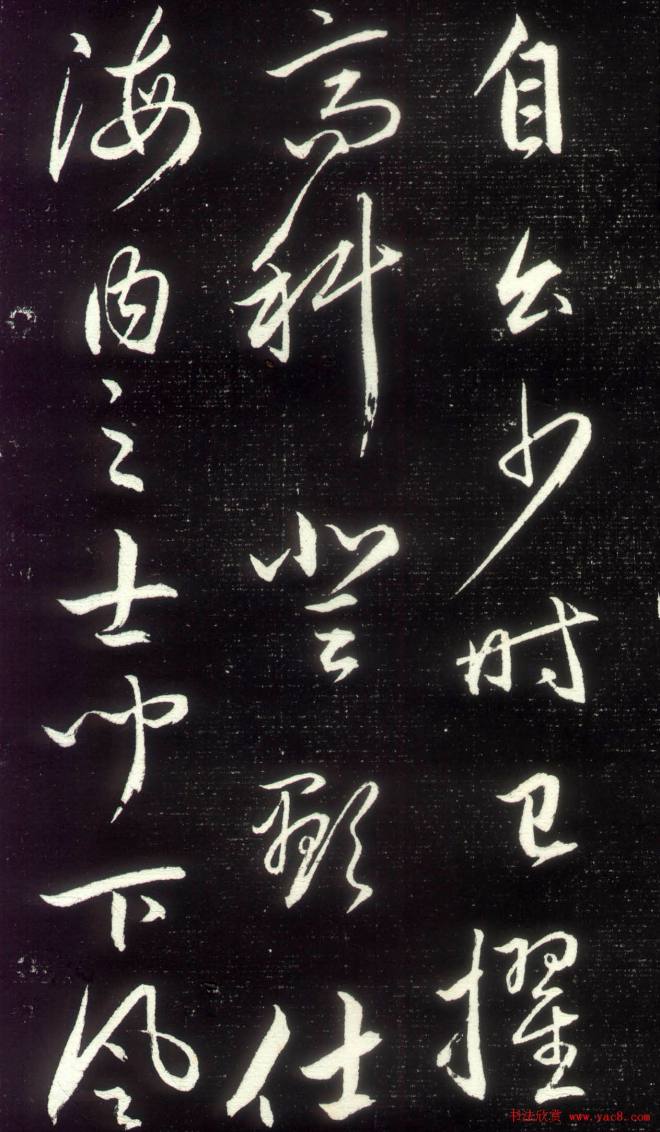 自公少时已擢
高科登顯仕
海内之士闻下风
书法欣赏 www.yac8.com